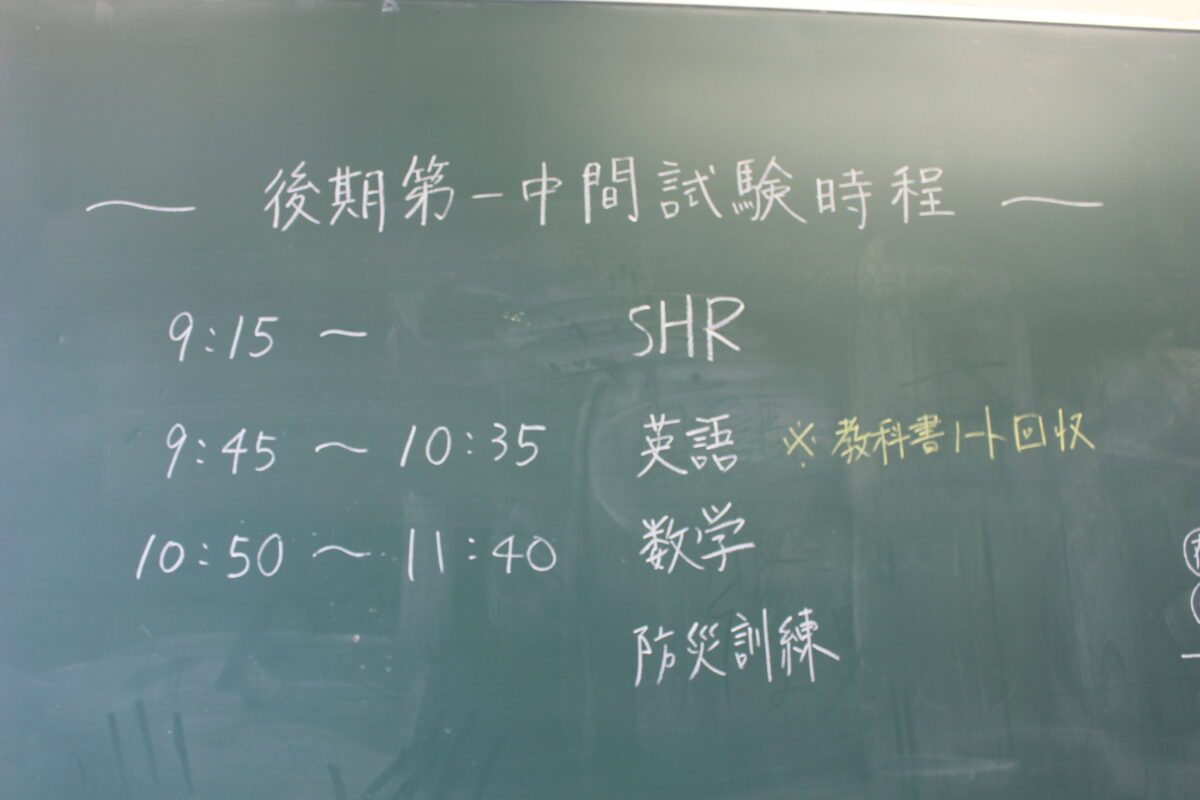 ～ 後期第一中間試験時程 ～
9:15 ～ SHR
9:45 ～ 10:35 英語 ※教科書ノート回収
10:50 ～ 11:40 数学
防災訓練